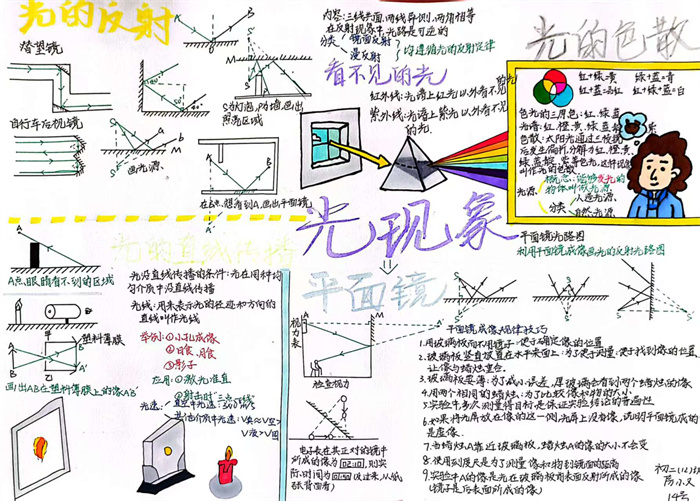 光的反射
潜望镜
自行车后视镜
画光源
S为灯泡,为墙画出
照亮区域
在B点,想看到A,画出平面镜
内容:三线共面,两线异侧,两角相等
在反射现象中,光路是可逆的
分类
镜面反射
漫反射
均遵循光的反射定律
看不见的光
红外线:光谱上红光以外看不见的光
紫外线:光谱上紫光以外看不见
的光
光的色散
红+绿=黄 绿+蓝=青
红+蓝=品红 红+绿+蓝=白
色光的三原色:红,绿,蓝
光谱:红,橙,黄,绿,蓝
色散:太阳光通过三棱镜
后发生偏折,分解为红,橙,黄,
叫作光的色散
光源
概念:能够发光的
物体叫做光源
分类
人造光源
自然光源
光现象
光的直线传播
A点,眼睛看不到的区域
塑料薄膜
甲
乙
画出AB在塑料薄膜上的像A'B'
光沿直线传播的条件:光在同种均
匀介质中沿直线传播
光线:用来表示光的径迹和方向的
直线叫作光线
举例:①小孔成像
②日食,月食
③影子
应用:①激光准直
②射击时"三点一线"
平面镜
视力表
检查视力
电子钟在其正对的镜中
所成的像为 02:10 ,则实
际时间为
平面镜光路图
利用平面镜成像画光的反射光路图
平面镜成像规律技巧
1.用玻璃板而不用镜子:便于确定像的位置
2.玻璃板竖直放置在水平桌面上:为了便于测量,便于找到像的位置,
让像与蜡烛重合.
3.玻璃板要薄:为了减小误差,厚玻璃会看到两个蜡烛的像
4.用两个相同的蜡烛:为了比较像和物的大小.
5.实验中多次测量得目的是:保证实验结论的普遍性
6.如果将光屏放在像的这一侧,光屏上没有像,说明平面镜成的
是虚像.
7.当蜡烛A靠近玻璃板,蜡烛A的像的大小不会变
8.使用刻度尺是为了测量像和物到镜面的距离
9.实验中A的像是光在玻璃板前表面反射所成的像
(镜子是后表面所成的像)